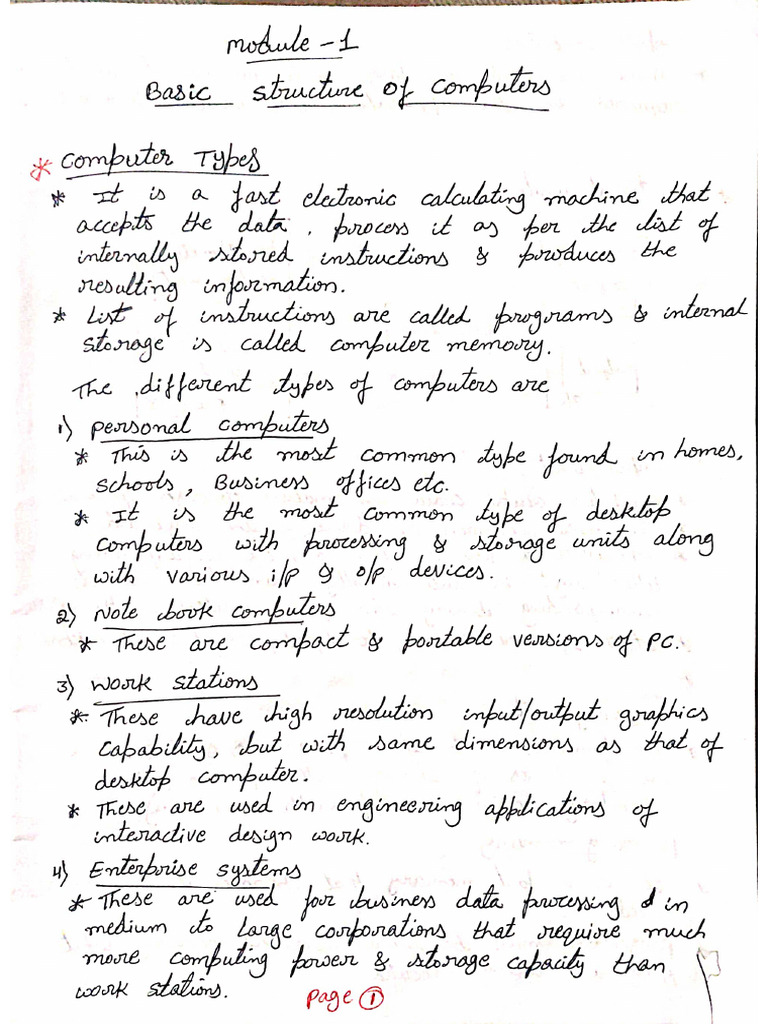 Module - 1
Basic structure of computers
* Computer Types
* It is a fast electronic calculating machine that
accepts the data, process it as per the list of
internally stored instructions & produces the
resulting information.
* List of instructions are called programs & internal
storage is called computer memory.
The different types of computers are
1) Personal computers
* This is the most common type found in homes,
schools, Business offices etc.
* It is the most common type of desktop
computers with processing & storage units along
with various i/p & o/p devices.
2) Note book computers
* These are compact & portable versions of PC.
3) Work stations
* These have high resolution input/output graphics
capability, but with same dimensions as that of
desktop computer.
* These are used in engineering applications of
interactive design work.
4) Enterprise systems
* These are used for business data processing in
medium to large corporations that require much
more computing power & storage capacity than
work stations.
Page 1